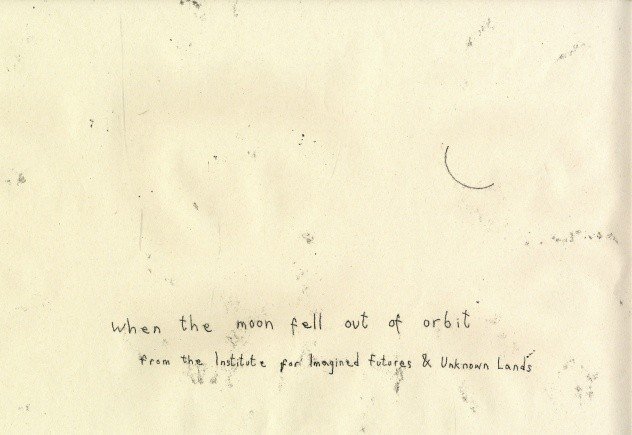 when the moon fell out of orbit
from the Institute for Imagined Futures & Unknown Lands